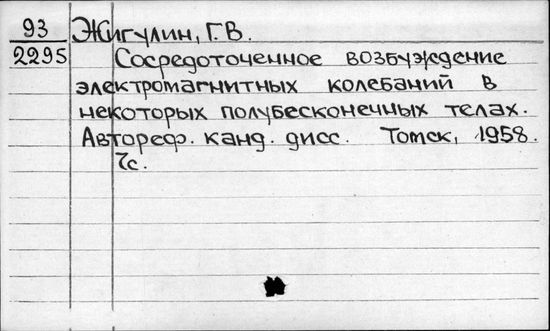 93 Жигулин, Г.В.
2295 Сосредоточенное возбуждение
электромагнитных колебаний в
некоторых полубесконечных телах.
Автореф. канд. дисс. Томск, 1958.
7с.